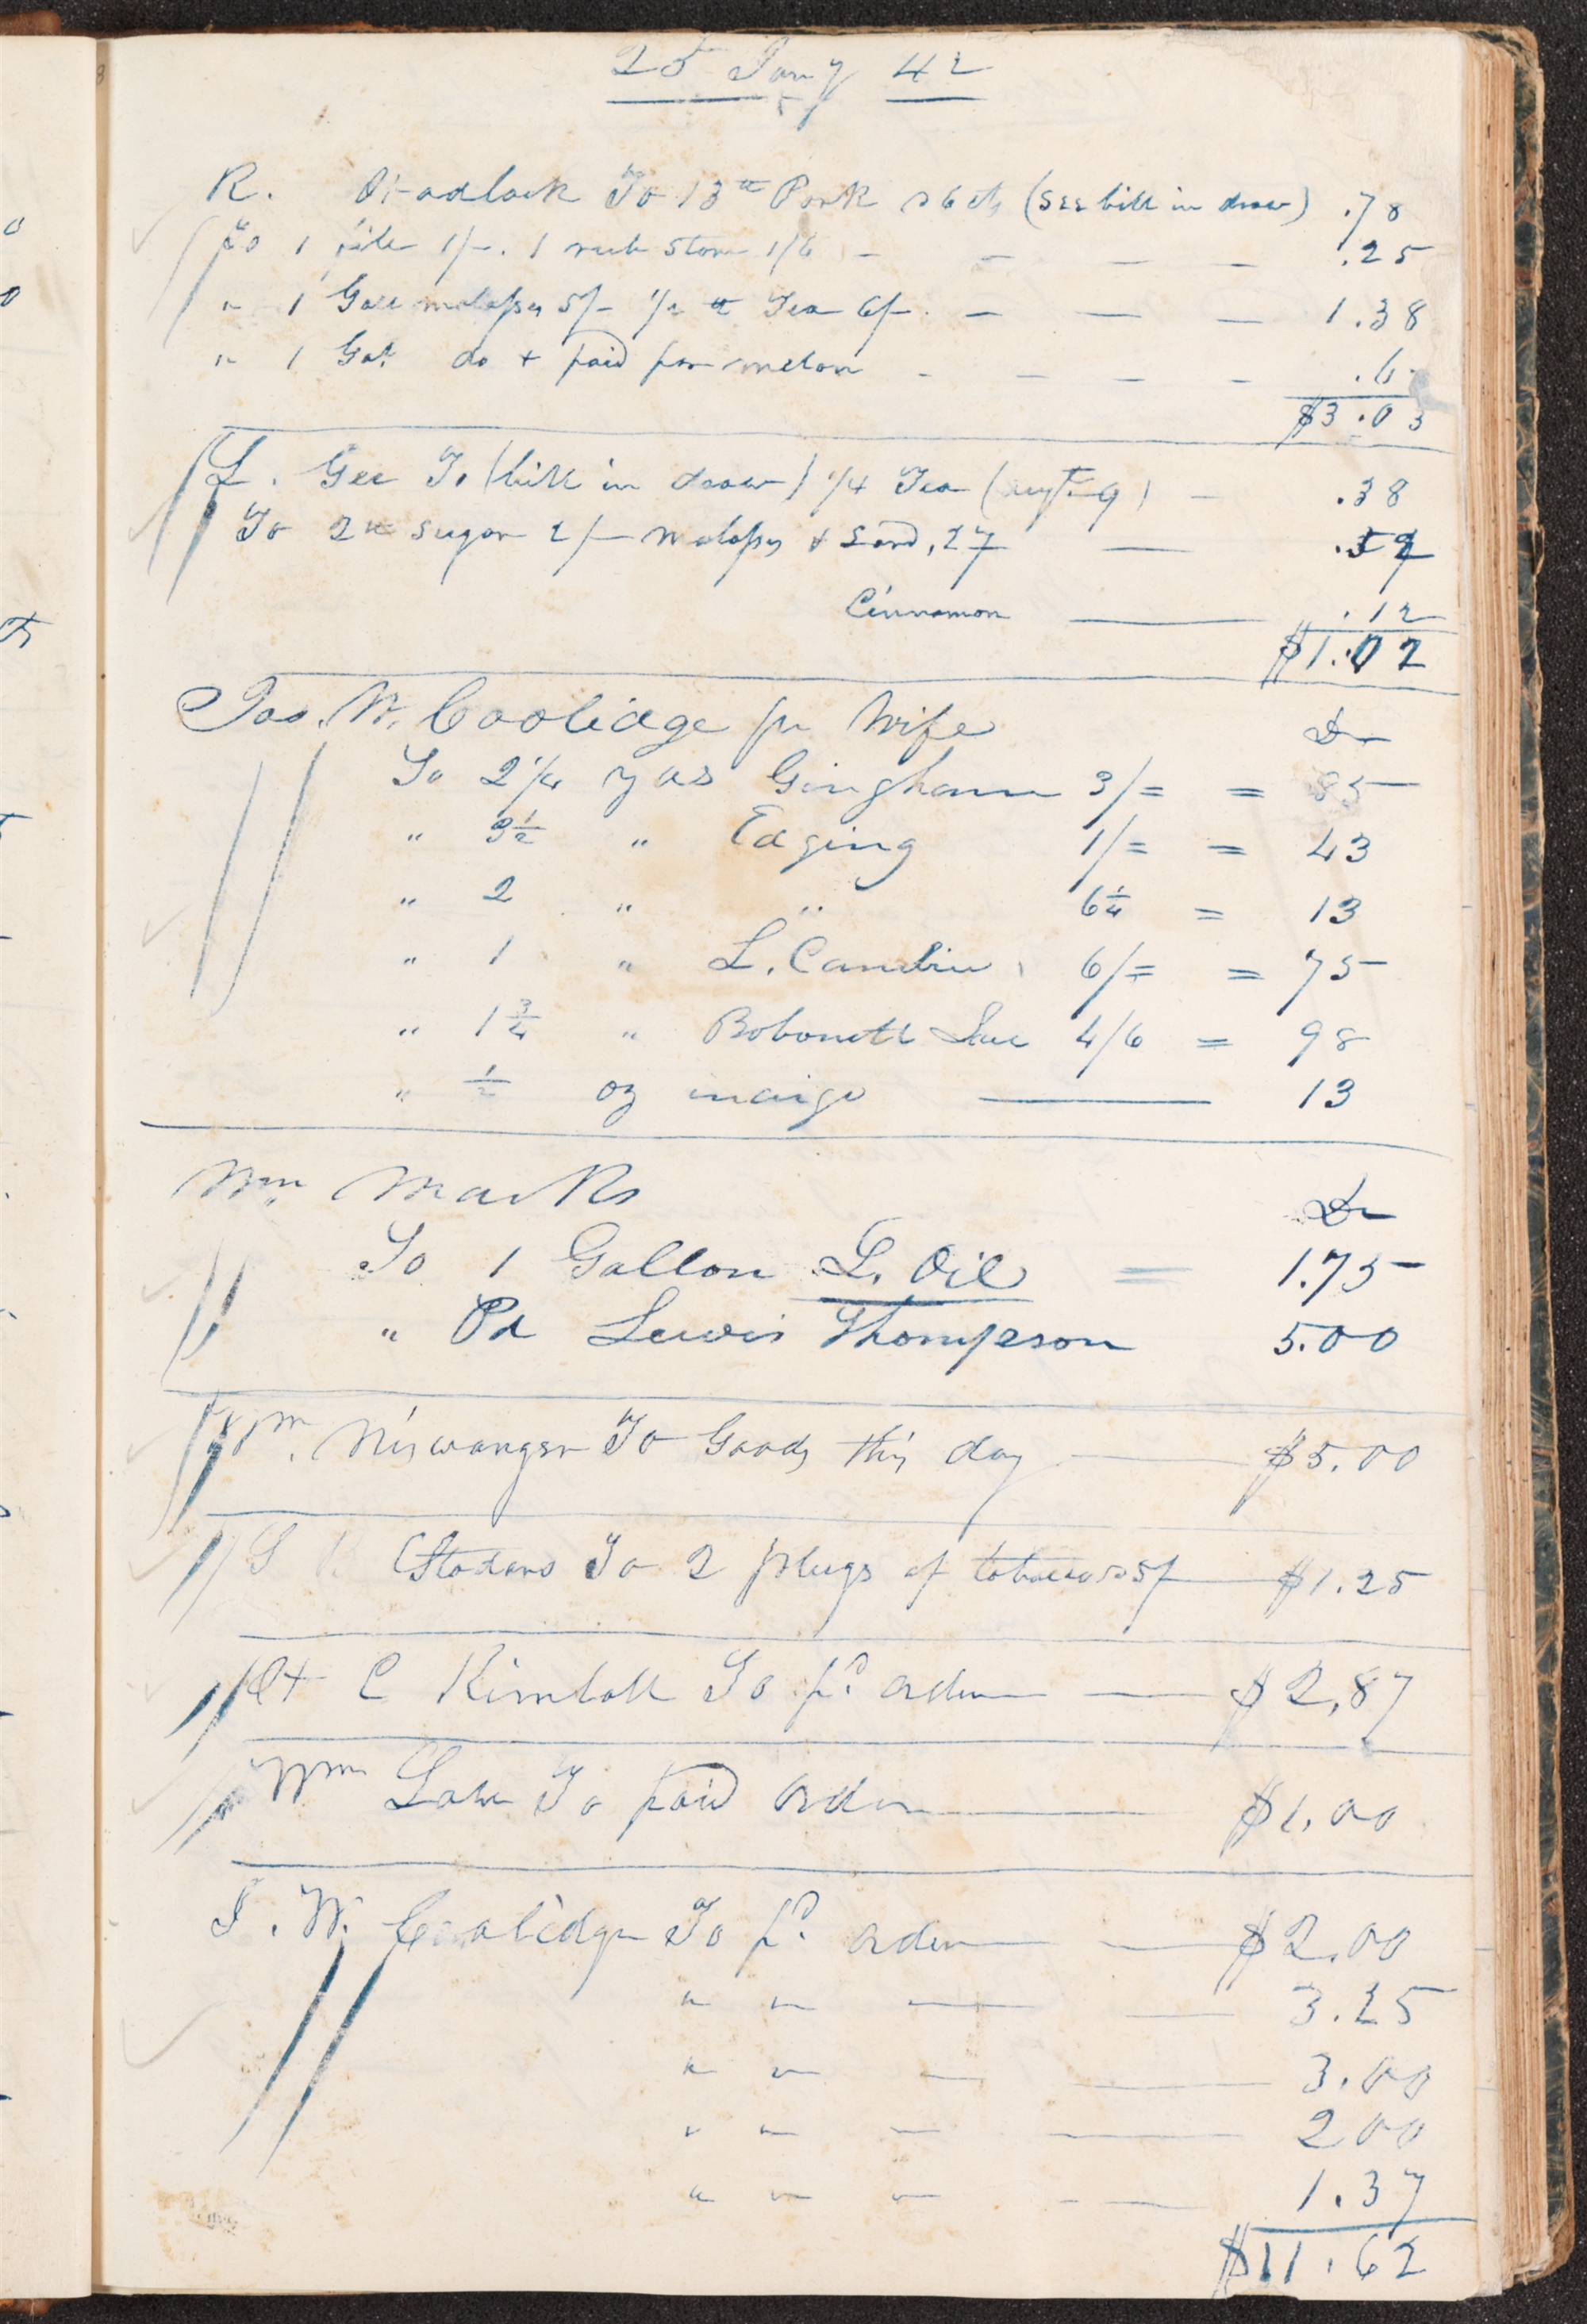 25 Jany 42
R. Hadlock To 13 ℔ Pork 6 cts (see bill in draw) .78
To 1 file 1/-. 1 rub stone 1/6 - - - - .25
" 1 Gall molasses 5/- 1/2 ℔ Tea 6/- . - - - 1.38
" 1 Gal do + paid for melon - - - - .6
$3.03
L. Gee To (bill in draw) 1/4 Tea - .38
To 2 ℔ sugar 2/- molasses & Sand, 27 —
Cinnamon — .12
$1.02
Jas. W. Coolidge pr Wife Dr
To 2 1/4 yds Gingham 3/= = 85
" 3 1/2 " Edging 1/= = 43
" 2 " " 6 1/4 = 13
" 1 " L. Cambric 6/= = 75
" 1 3/4 " Bobonett Lace 4/6 = 98
" 1/2 oz indigo — 13
Wm Marks Dr
To 1 Gallon L. Oil = 1.75
" Pd Lewis Thompson 5.00
Wm. Niswanger To Goods this day — $5.00
To 2 plugs of tobacco 5/ — $1.25
H C Kimball To pd. order — $2,87
Wm Law To paid order — $1.00
J. W. Coolidge To pd. order — $2.00
" " — — 3.25
" " — — 3.00
" " — — 200
" " — — 1.37
$11.62